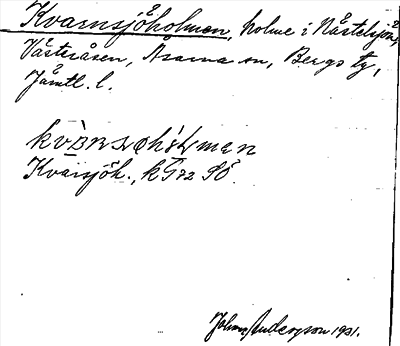 Kvarnsjöholmen, holme i Nästelsjön,
Västeråsen, Åsarna sn, Bergs tg,
Jämtl. l.
Kvarsjöh., kG 92 SÖ.
Johan Anderson 1931.